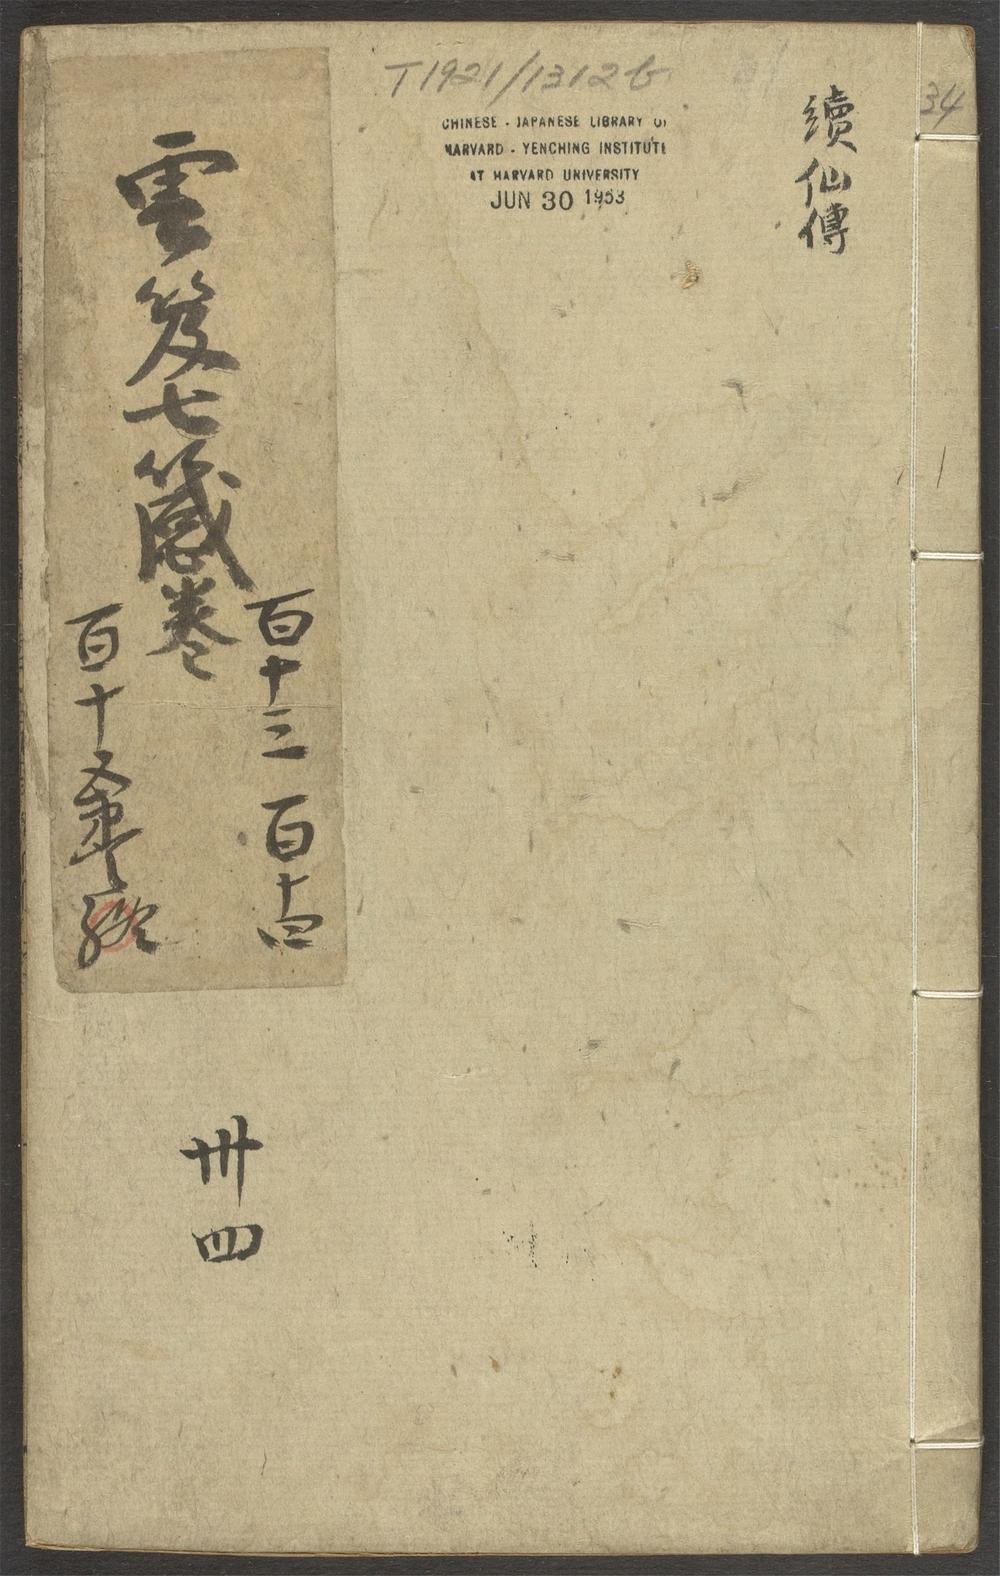 T1921/1312b
34
CHINESE - JAPANESE LIBRARY O
HARVARD - YENCHING INSTITUTE
AT HARVARD UNIVERSITY
JUN 30 1953
續仙傳
雲笈七籤卷
百十三 百十四
百十五
卅四